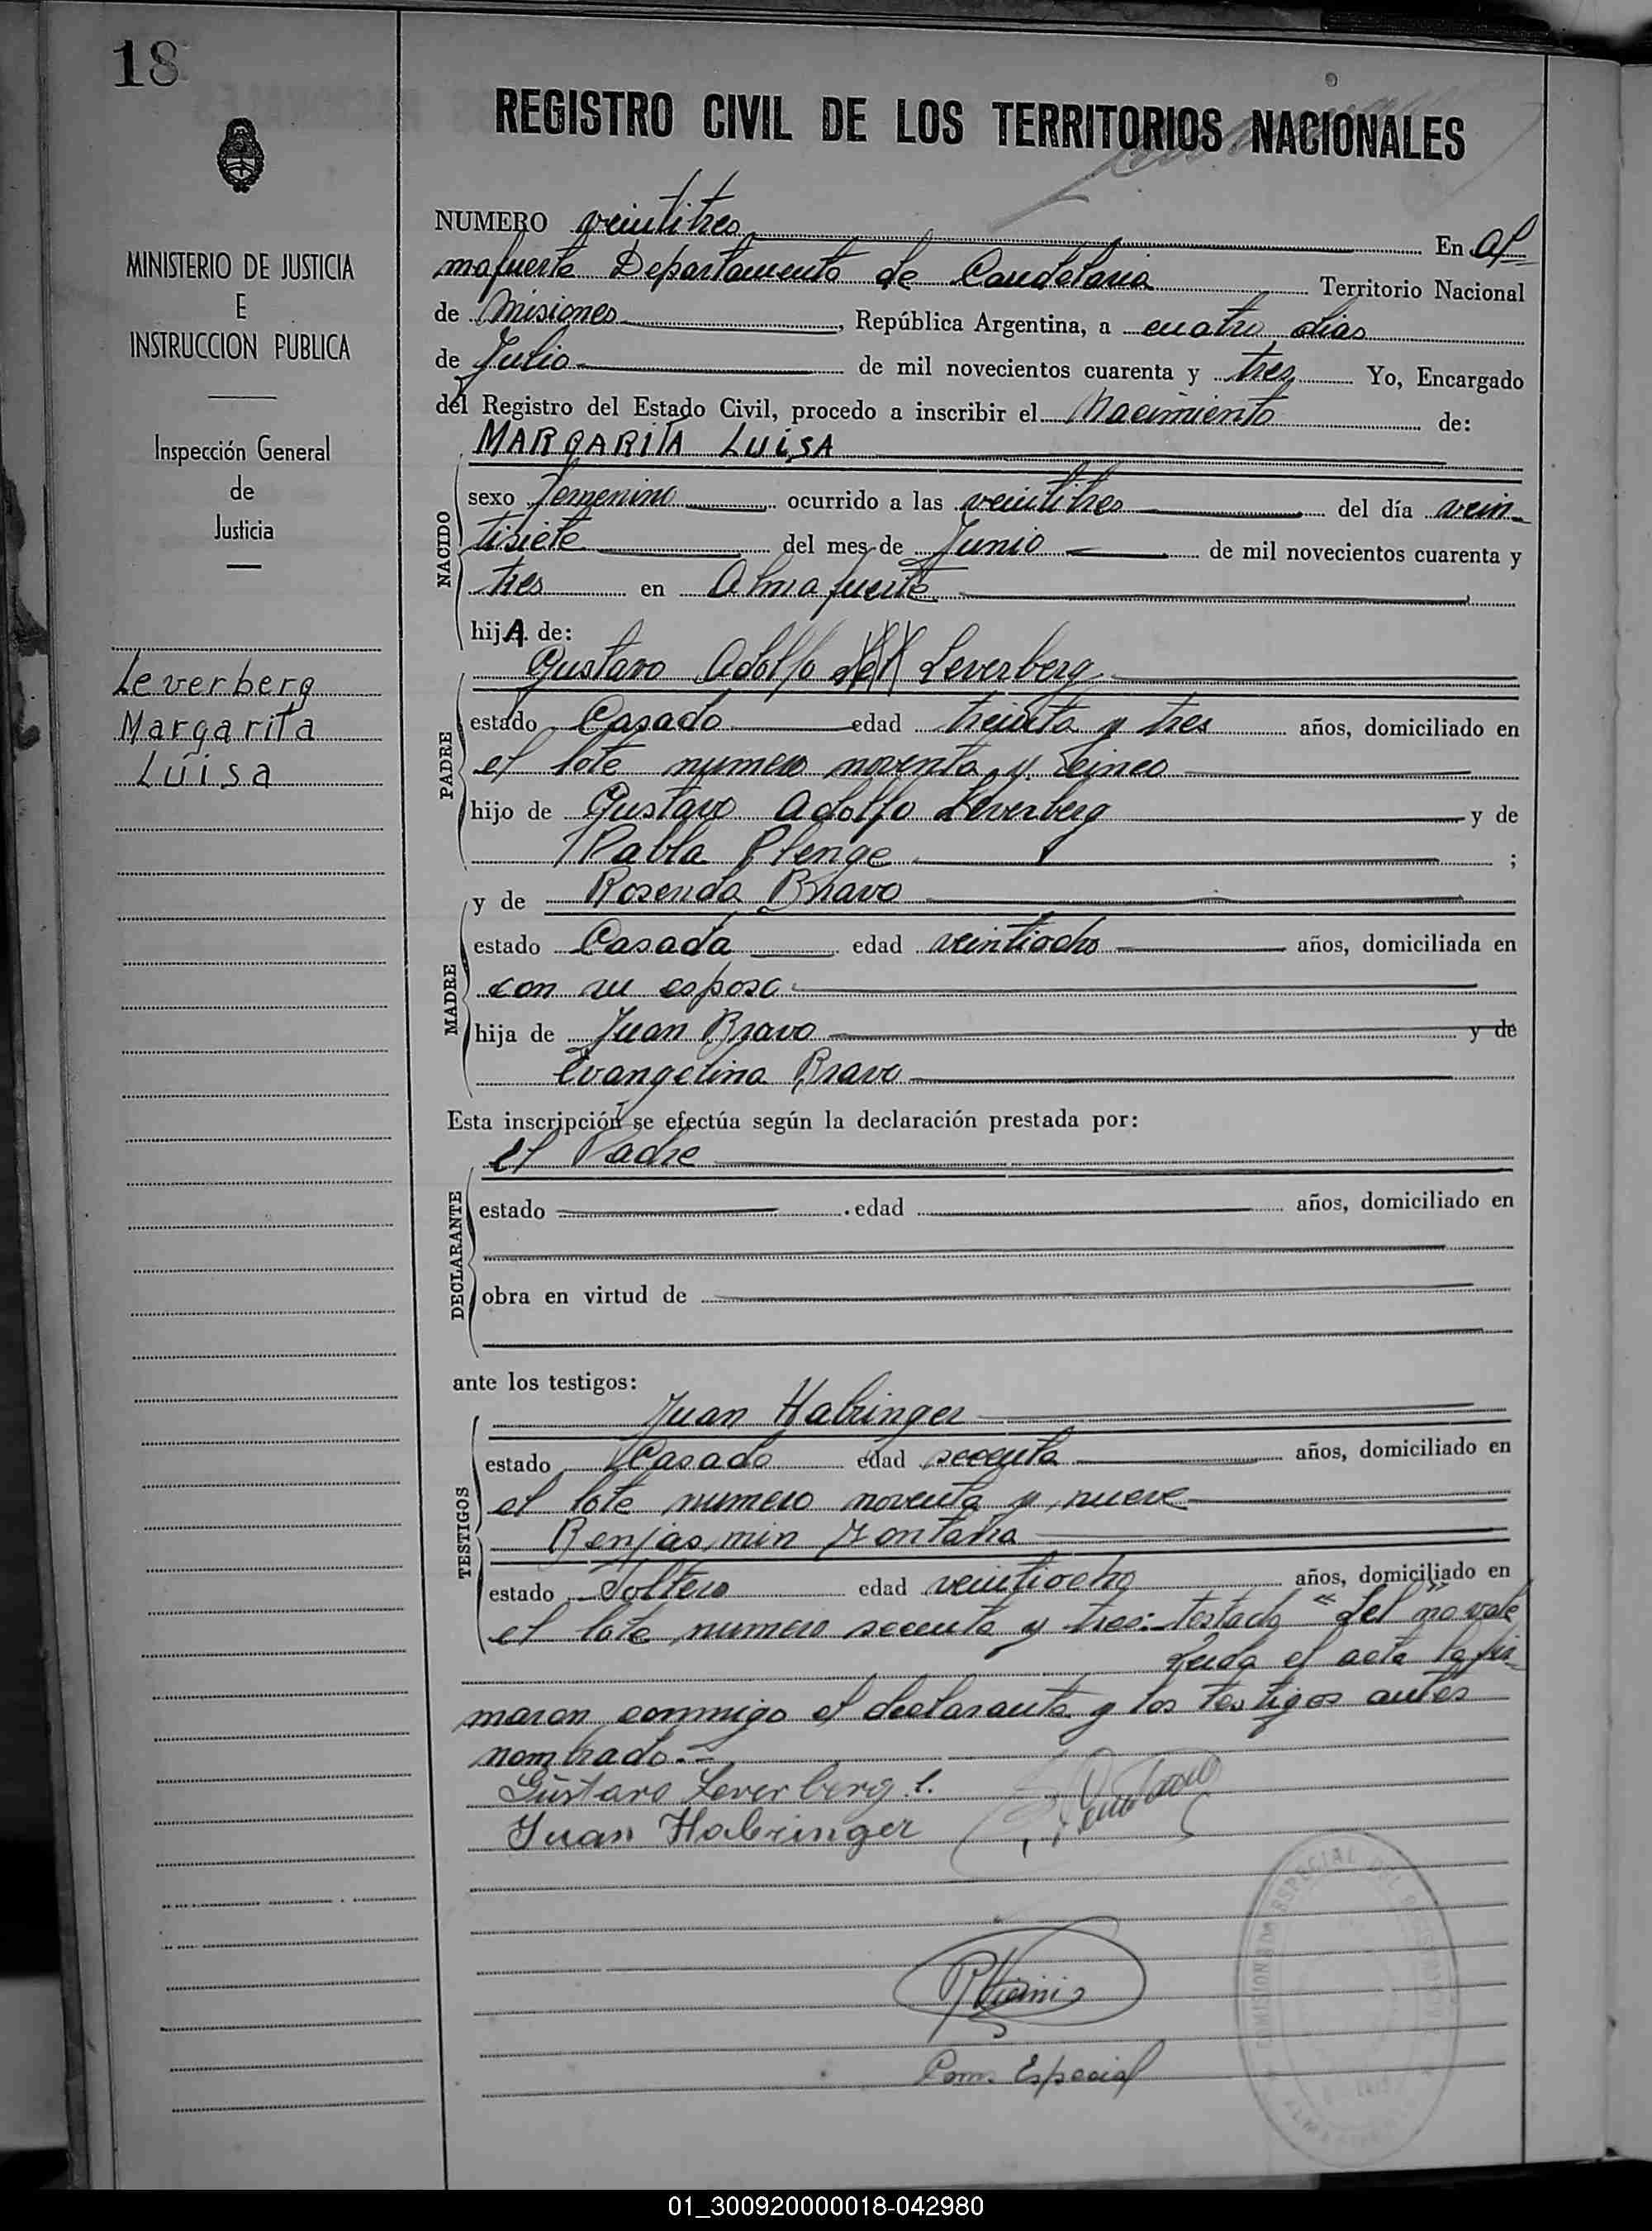 18
MINISTERIO DE JUSTICIA
E
INSTRUCCION PUBLICA
Inspección General
de
Justicia
Leverberg
Margarita
Luisa
REGISTRO CIVIL DE LOS TERRITORIOS NACIONALES
NUMERO veintitres En Al-
mafuerte Departamento de Candelaria Territorio Nacional
de Misiones, República Argentina, a cuatro dias
de Julio de mil novecientos cuarenta y tres Yo, Encargado
del Registro del Estado Civil, procedo a inscribir el Nacimiento de:
MARGARITA LUISA
NACIDO
sexo femenino ocurrido a las veintitres del día vein-
tisiete del mes de Junio de mil novecientos cuarenta y
tres en Almafuerte
hijA de:
Gustavo Adolfo del Leverberg
PADRE
estado Casado edad treinta y tres años, domiciliado en
el lote numero noventa y cinco
hijo de Gustavo Adolfo Leverberg y de
Pabla Plenge ;
y de Rosenda Bravo
MADRE
estado Casada edad veintiocho años, domiciliada en
con su esposo
hija de Juan Bravo y de
Evangelina Bravo
Esta inscripción se efectúa según la declaración prestada por:
el Padre
DECLARANTE
estado edad años, domiciliado en
obra en virtud de
ante los testigos:
Juan Habringer
TESTIGOS
estado Casado edad secenta años, domiciliado en
el lote numero noventa y nueve
Benjasmin Montaña
estado Soltero edad veintiocho años, domiciliado en
el lote numero secenta y tres: testado "del" no vale
Leida el acta la fir-
maron conmigo el declarante y los testigos antes
nombrado.-
Gustavo Leverberg
Juan Habringer
Com. Especial
01_300920000018-042980